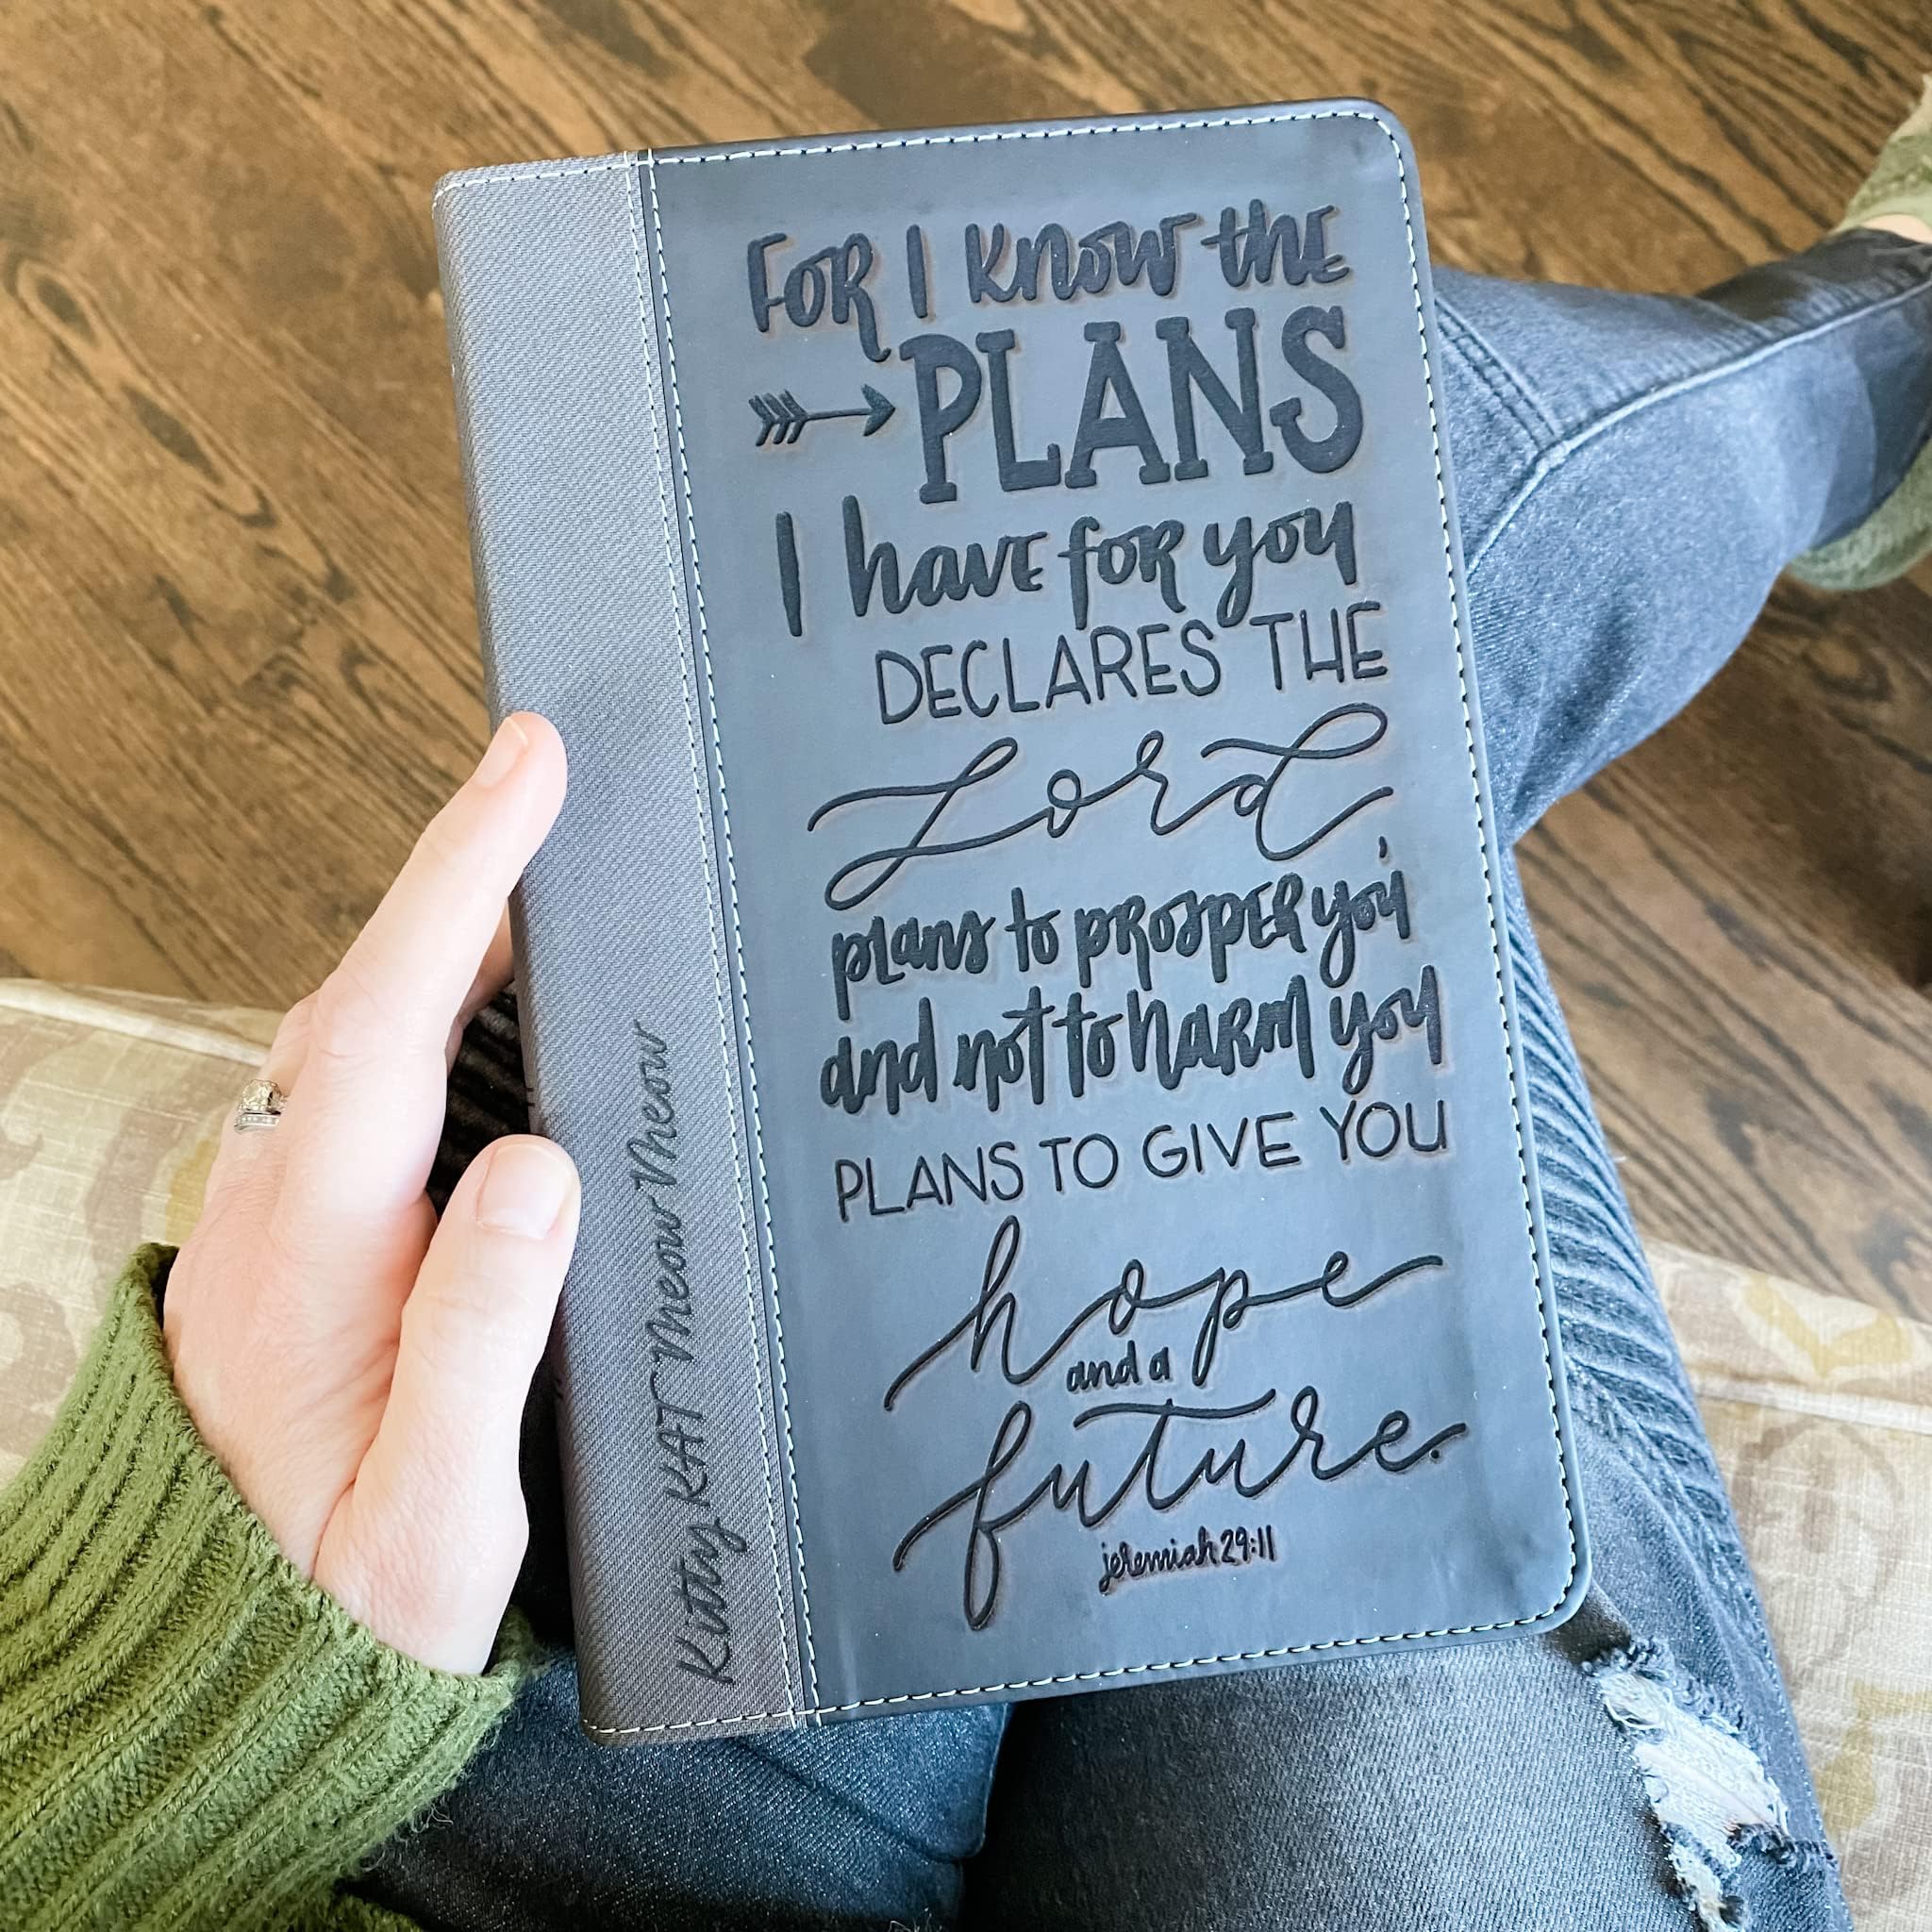 FOR I KNOW the
PLANS
I have for you
DECLARES THE
Lord
plans to prosper you'
and not to harm you
PLANS TO GIVE YOU
hope
and a
future.
jeremiah 29:11
Kitty KAT Meow Meow